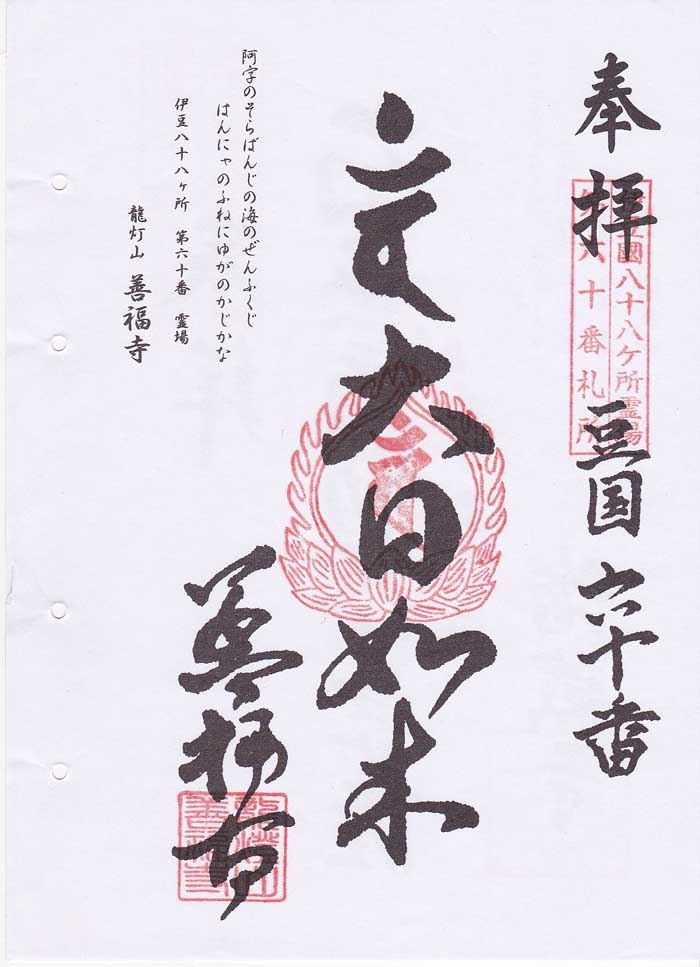 奉拝
豆国六十番
豆國八十八ケ所霊場
六十番札所
大日如来
善福寺
阿字のそらばんじの海のぜんふくじ
はんにゃのふねにゆがのかじかな
伊豆八十八ヶ所 第六十番 霊場
龍灯山 善福寺